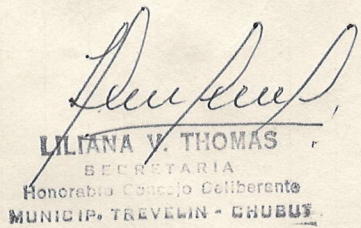 LILIANA V. THOMAS
SECRETARIA
Honorable Concejo Deliberante
MUNICIP. TREVELIN - CHUBUT